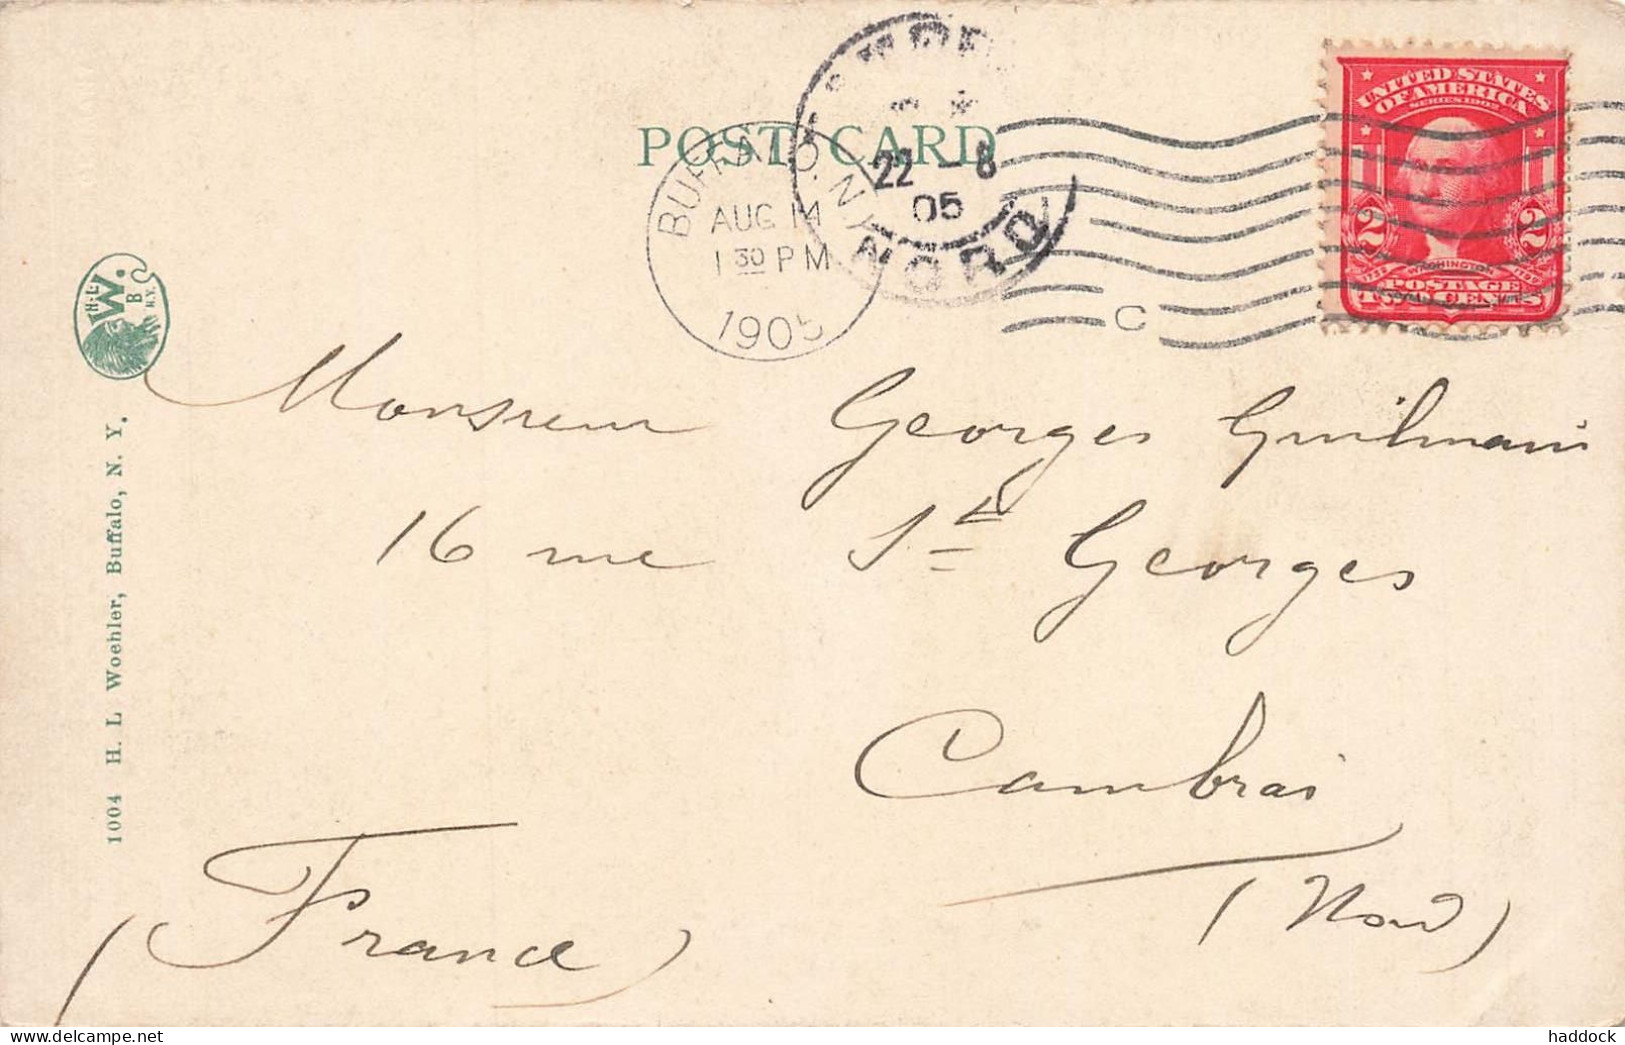 POST CARD
BUFFALO, N.Y.
AUG 14
1 30 PM
1905
22 - 8
05
NORD
C
UNITED STATES
OF AMERICA
SERIES 1902
2 2
WASHINGTON
POSTAGE
TWO CENTS
H.L.
W.
B
N.Y.
1004 H. L Woehler, Buffalo, N. Y.
Monsieur Georges Guilmain
16 rue St Georges
Cambrai
(Nord)
(France)
haddock